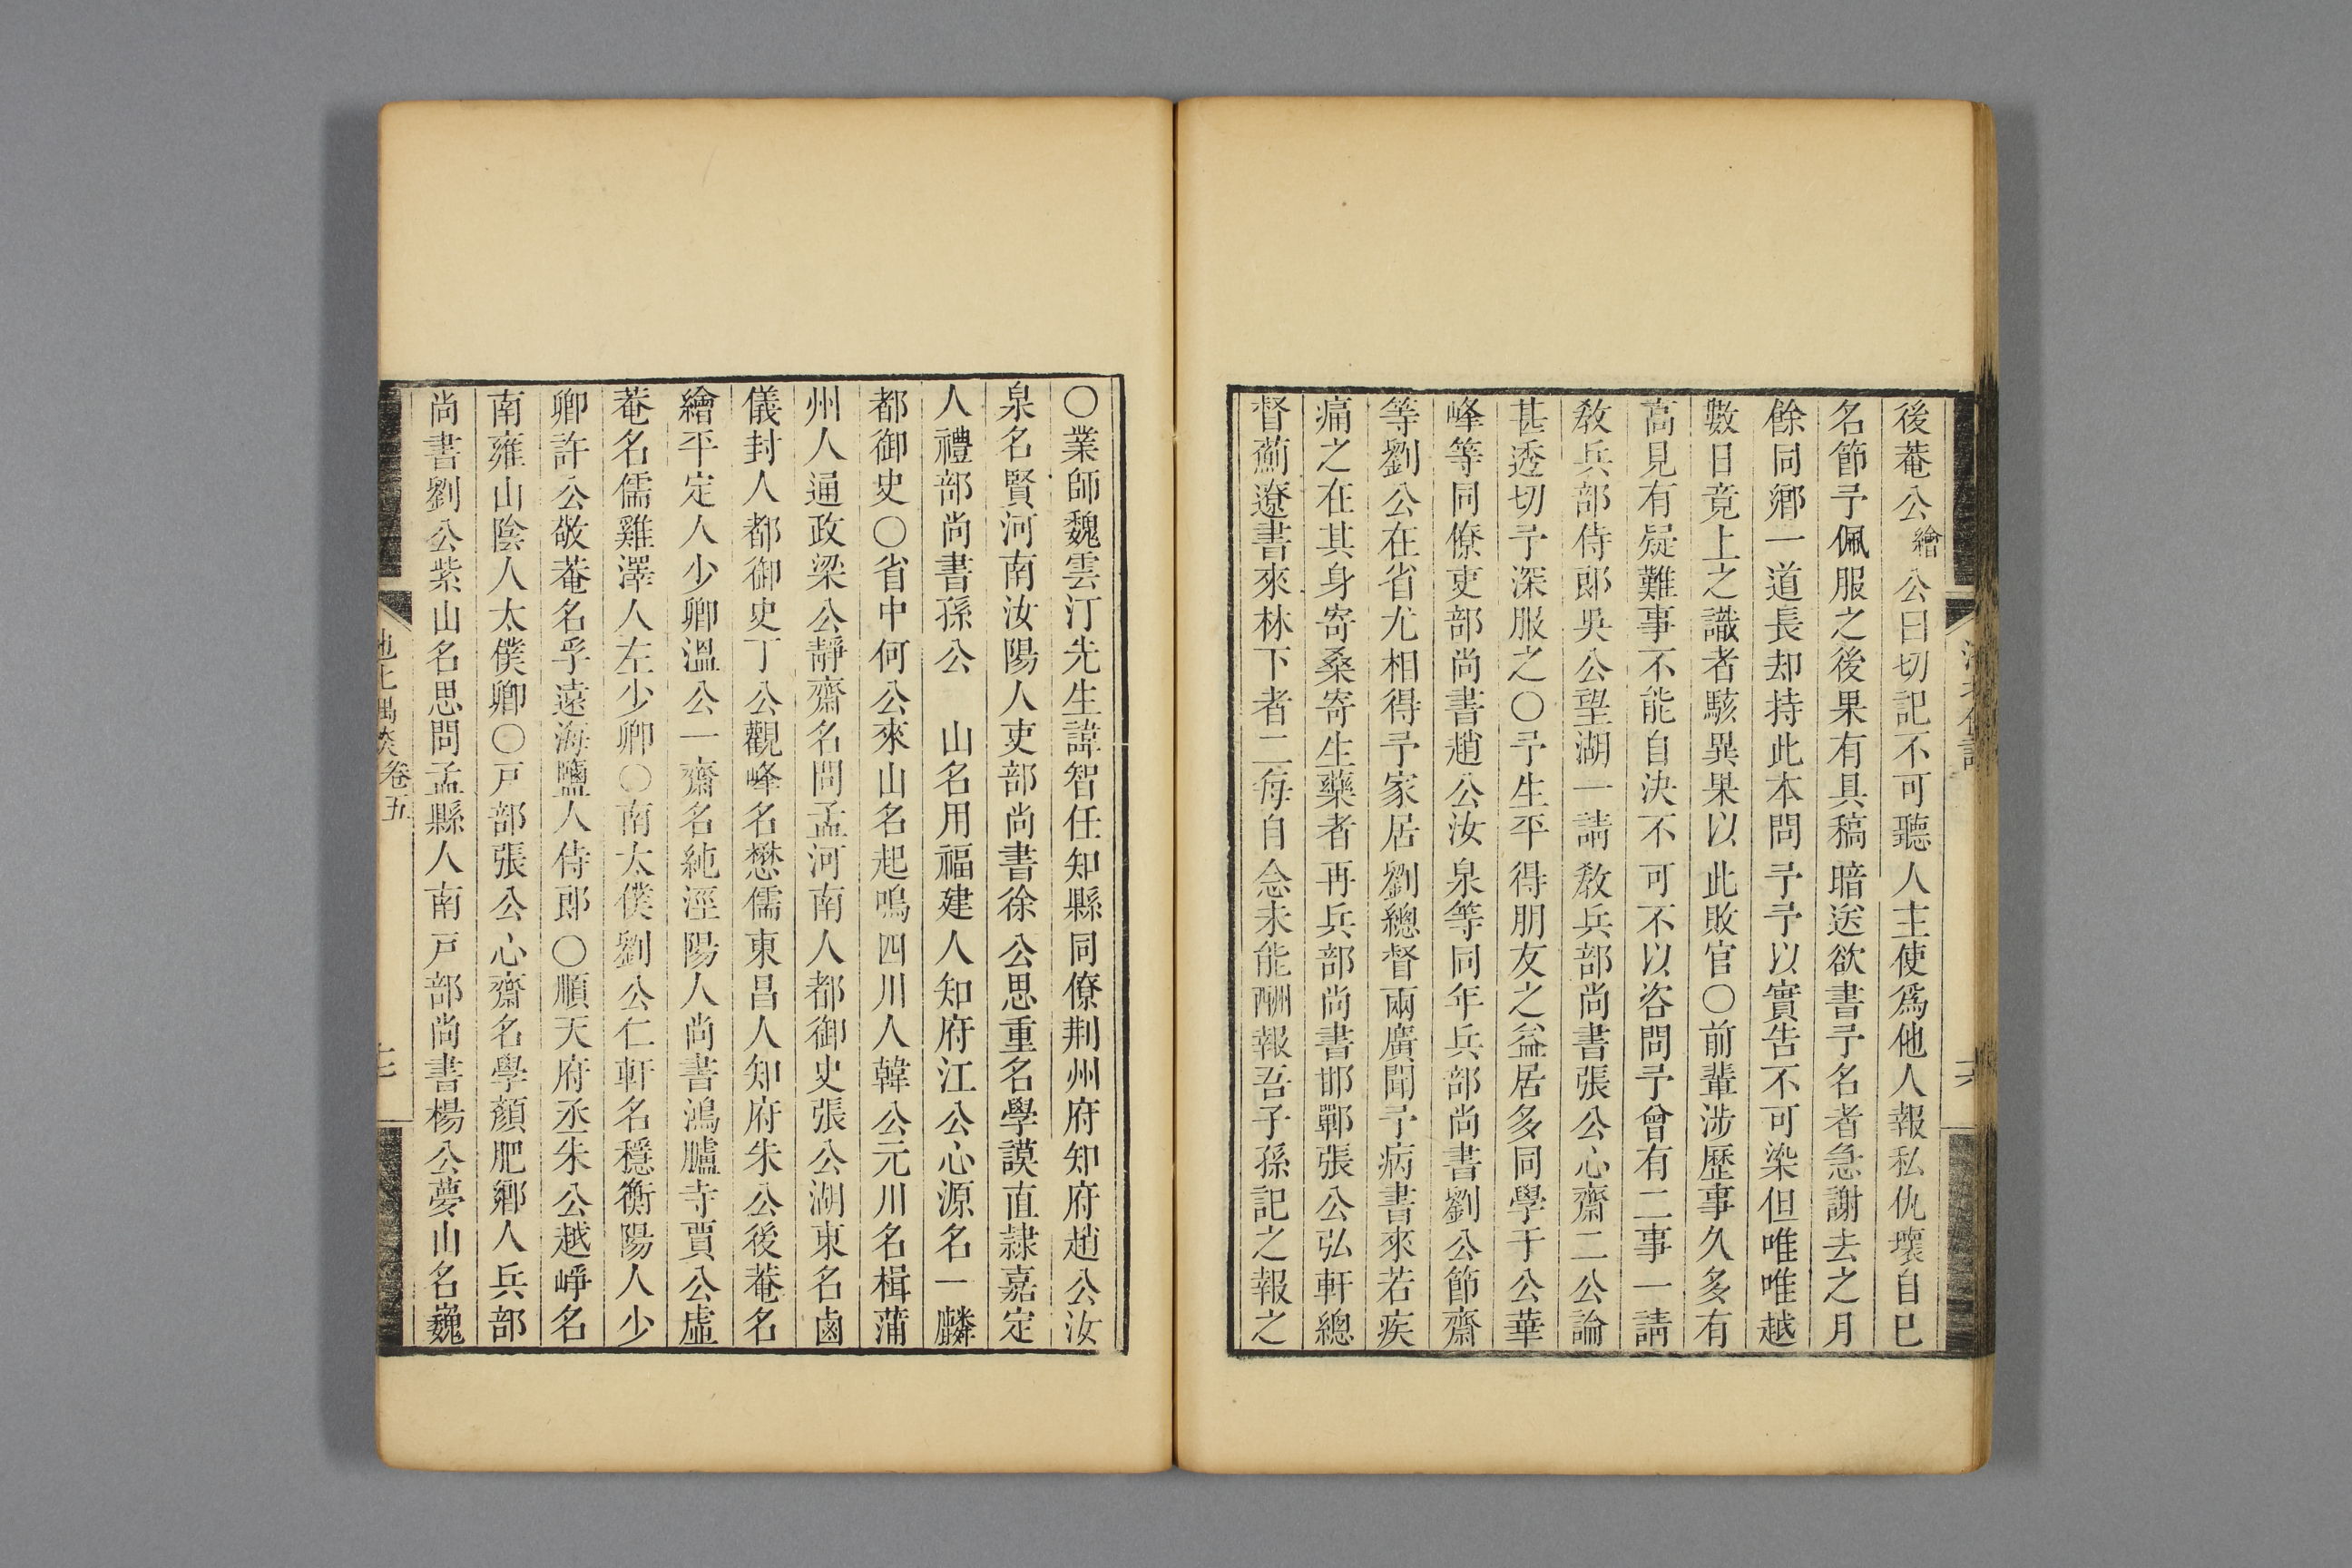 後菴公繪公曰切記不可聽人主使爲他人報私仇壞自已
名節予佩服之後果有具稿暗送欲書予名者急謝去之月
餘同鄉一道長却持此本問予予以實告不可染但唯唯越
數日竟上之識者駭異果以此敗官〇前輩涉歷事久多有
高見有疑難事不能自決不可不以咨問予曾有二事一請
敎兵部侍郎吳公望湖一請敎兵部尚書張公心齋二公論
甚透切予深服之〇予生平得朋友之益居多同學于公華
峰等同僚吏部尚書趙公汝泉等同年兵部尚書劉公節齋
等劉公在省尤相得予家居劉總督兩廣聞予病書來若疾
痛之在其身寄桑寄生藥者再兵部尚書邯鄲張公弘軒總
督薊遼書來林下者二每自念未能酬報吾子孫記之報之
〇業師魏雲汀先生諱智任知縣同僚荆州府知府趙公汝
泉名賢河南汝陽人吏部尚書徐公思重名學謨直隸嘉定
人禮部尚書孫公 山名用福建人知府江公心源名一麟
都御史〇省中何公來山名起鳴四川人韓公元川名楫蒲
州人通政梁公靜齋名問孟河南人都御史張公湖東名鹵
儀封人都御史丁公觀峰名懋儒東昌人知府朱公後菴名
繪平定人少卿溫公一齋名純涇陽人尚書鴻臚寺賈公虛
菴名儒雞澤人左少卿〇南太僕劉公仁軒名穩衡陽人少
卿許公敬菴名孚遠海鹽人侍郎〇順天府丞朱公越崢名
南雍山陰人太僕卿〇戸部張公心齋名學顏肥鄉人兵部
尚書劉公紫山名思問孟縣人南戸部尚書楊公夢山名巍
卷五